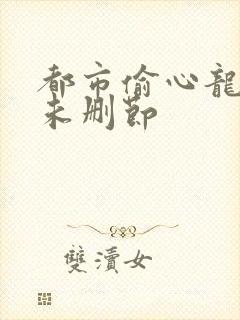 都市偷心龍
未删節
雙瀆女